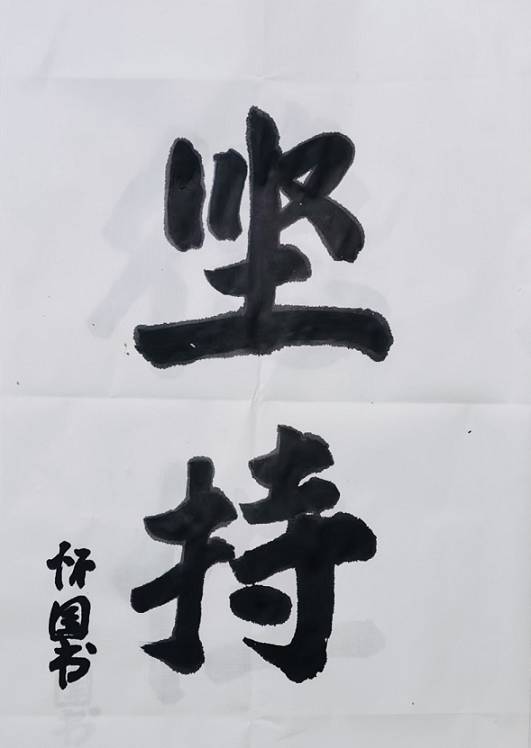 坚持
怀国书